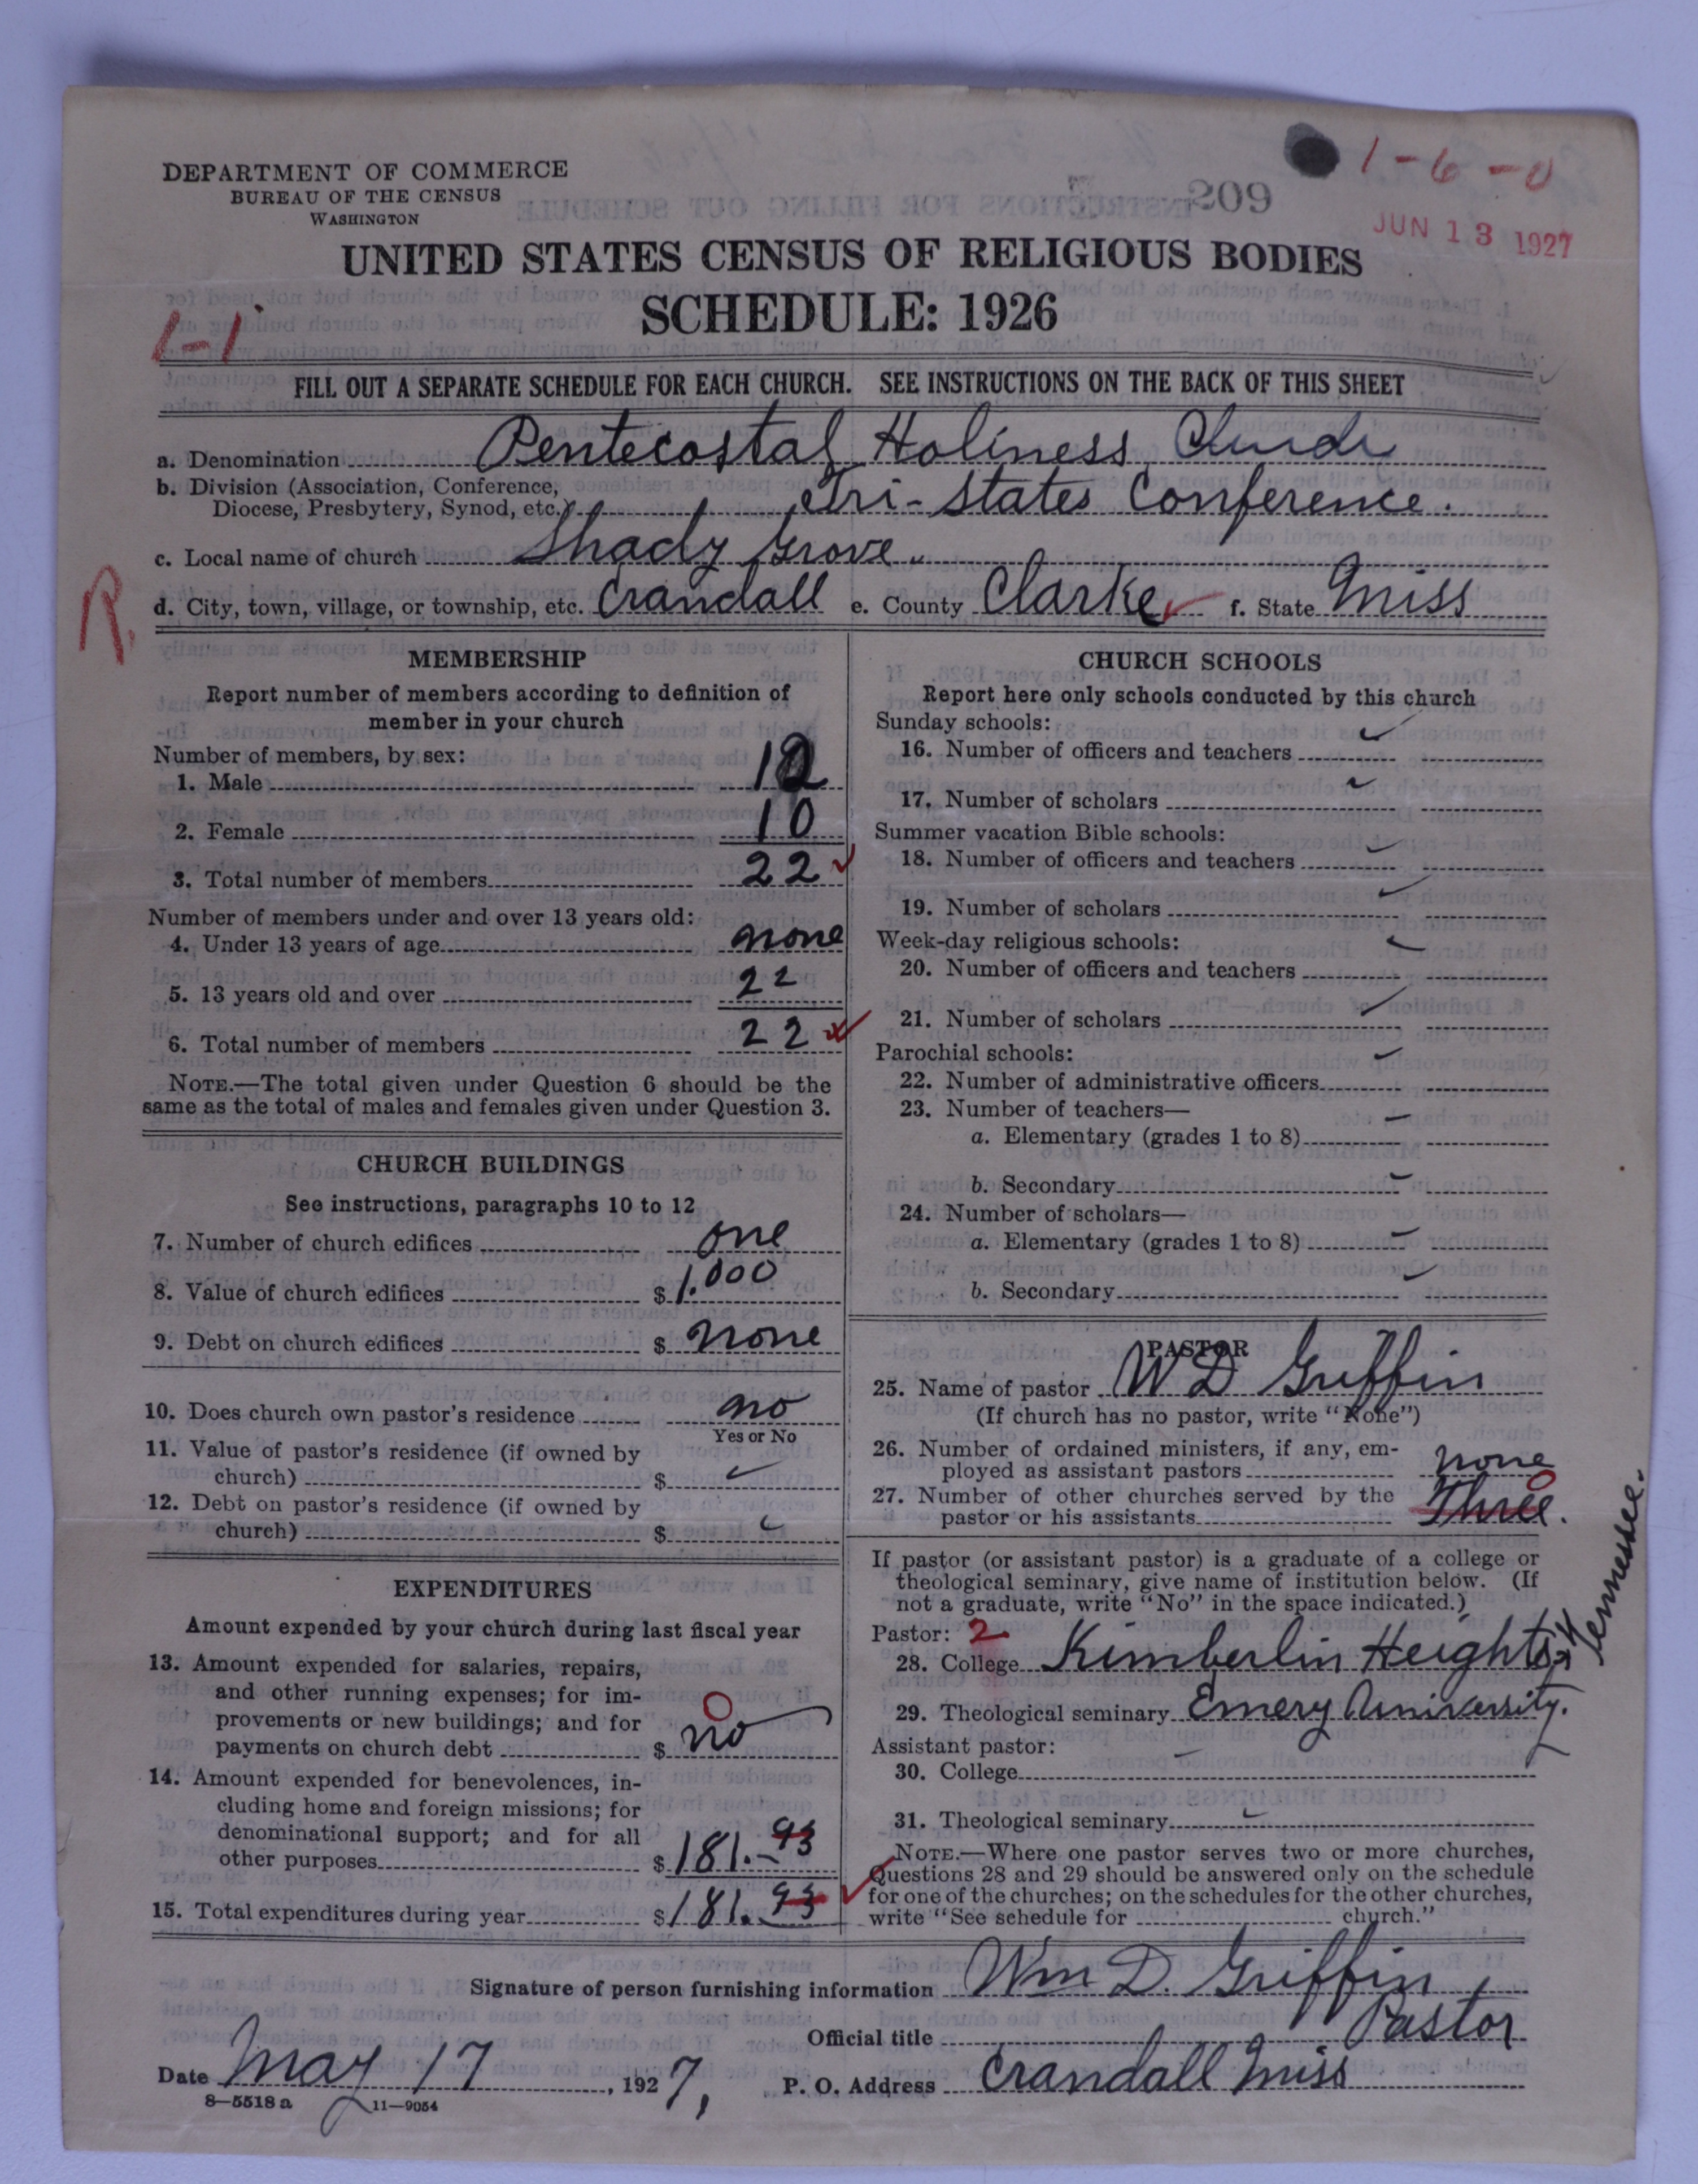 DEPARTMENT OF COMMERCE
BUREAU OF THE CENSUS
WASHINGTON
209
1-6-0
JUN 13 1927
UNITED STATES CENSUS OF RELIGIOUS BODIES
SCHEDULE: 1926
1-1
FILL OUT A SEPARATE SCHEDULE FOR EACH CHURCH. SEE INSTRUCTIONS ON THE BACK OF THIS SHEET
a. Denomination Pentecostal Holiness Church
b. Division (Association, Conference,
Diocese, Presbytery, Synod, etc.) Tri-States Conference.
c. Local name of church Shady Grove
R.
d. City, town, village, or township, etc. Crandall e. County Clarke f. State Miss
MEMBERSHIP
Report number of members according to definition of
member in your church
Number of members, by sex:
1. Male 12
2. Female 10
3. Total number of members 22
Number of members under and over 13 years old:
4. Under 13 years of age none
5. 13 years old and over 22
6. Total number of members 22
NOTE.—The total given under Question 6 should be the
same as the total of males and females given under Question 3.
CHURCH BUILDINGS
See instructions, paragraphs 10 to 12
7. Number of church edifices one
8. Value of church edifices $ 1.000
9. Debt on church edifices $ none
10. Does church own pastor's residence no
Yes or No
11. Value of pastor's residence (if owned by
church) $
12. Debt on pastor's residence (if owned by
church) $
EXPENDITURES
Amount expended by your church during last fiscal year
13. Amount expended for salaries, repairs,
and other running expenses; for im-
provements or new buildings; and for
payments on church debt $ no
0
14. Amount expended for benevolences, in-
cluding home and foreign missions; for
denominational support; and for all
other purposes $ 181.93
15. Total expenditures during year $ 181.93
CHURCH SCHOOLS
Report here only schools conducted by this church
Sunday schools:
16. Number of officers and teachers
17. Number of scholars
Summer vacation Bible schools:
18. Number of officers and teachers
19. Number of scholars
Week-day religious schools:
20. Number of officers and teachers
21. Number of scholars
Parochial schools:
22. Number of administrative officers
23. Number of teachers—
a. Elementary (grades 1 to 8)
b. Secondary
24. Number of scholars—
a. Elementary (grades 1 to 8)
b. Secondary
PASTOR
25. Name of pastor W D Griffin
(If church has no pastor, write "None")
26. Number of ordained ministers, if any, em-
ployed as assistant pastors none
27. Number of other churches served by the
pastor or his assistants Three.
0
If pastor (or assistant pastor) is a graduate of a college or
theological seminary, give name of institution below. (If
not a graduate, write "No" in the space indicated.)
Pastor: 2
28. College Kimberlin Heights
Tennessee.
29. Theological seminary Emery University.
Assistant pastor:
30. College
31. Theological seminary
NOTE.—Where one pastor serves two or more churches,
Questions 28 and 29 should be answered only on the schedule
for one of the churches; on the schedules for the other churches,
write "See schedule for church."
Signature of person furnishing information Wm D. Griffin
Official title Pastor
Date May 17, 1927, P. O. Address Crandall Miss
8—5518a 11—9054